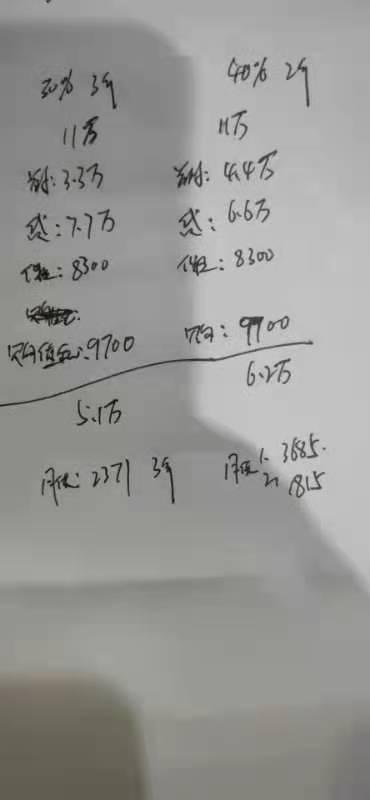 30% 3年
11万
首付: 3.3万
贷: 7.7万
保险: 8300
购置税: 9700
5.1万
月供: 2371 3年
40% 2年
11万
首付: 4.4万
贷: 6.6万
保险: 8300
: 9700
6.2万
月供 1. 3685.
2. 1815